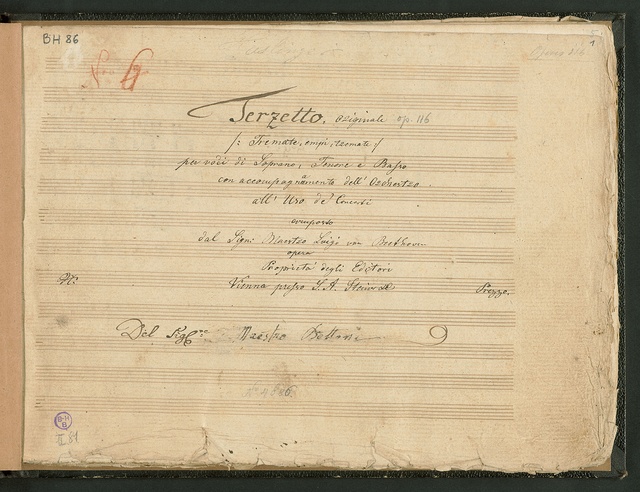 BH 86
1
No 4
Terzetto. originale op. 116
/: Tremate, empi, tremate :/
per voci di Soprano, Tenore e Basso
con accompagnamento dell' Orchestra
all' Uso de' Concerti
composto
dal Sigre Maestro Luigi van Beethoven
opera
Proprietà degli Editori
No. Vienna presso S. A. Steiner Prezzo.
Del Sigre Maestro
B-H
B
II 81